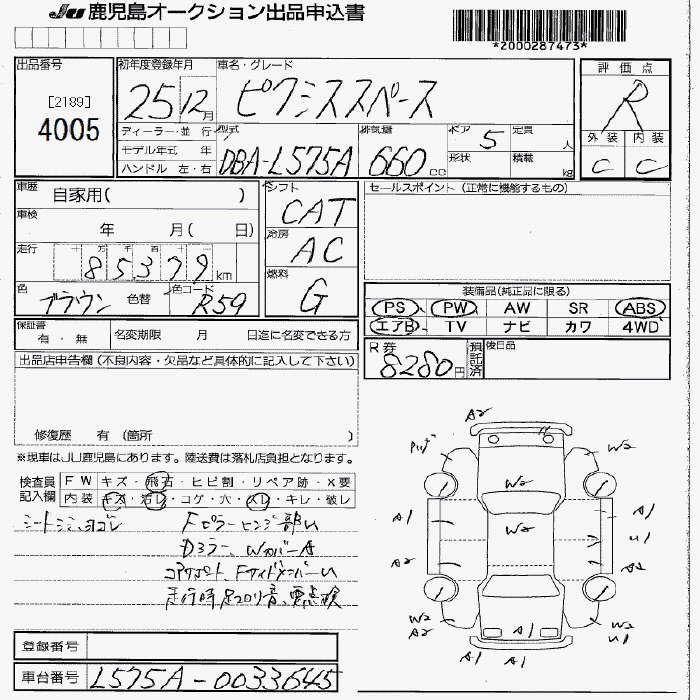 JU 鹿児島オークション出品申込書
*2000287473*
出品番号
[2189]
4005
初年度登録年月
25 12月
車名・グレード
ピクミススペース
評価点
R
外装 内装
C C
ディーラー・並行
モデル年式 年
ハンドル 左・右
型式
DBA-L575A
排気量
660cc
ドア 5
定員 人
形状
積載 kg
車歴
自家用( )
車検
年 月( 日)
走行
十 万 千 百 十 一
85379km
色
ブラウン 色替
色コード
R59
シフト
CAT
冷房
AC
燃料
G
セールスポイント (正常に機能するもの)
装備品(純正品に限る)
PS PW AW SR ABS
エアB TV ナビ カワ 4WD
保証書
有・無
名変期限 月 日迄に名変できる方
R券
8280円
預託済
後日品
出品店申告欄 (不良内容・欠品など具体的に記入して下さい)
修復歴 有 (箇所 )
※現車はJU鹿児島にあります。陸送費は落札店負担となります。
検査員記入欄
FW キズ・飛石・ヒビ割・リペア跡・X要
内装 キズ・汚レ・コゲ・穴・スレ・キレ・破レ
シートシミ、ヨゴレ
Fピラーヒンジ部U
Dミラー、WカバーA
コアサポート、FサイドメンバーU
走行時足コロリ音、要点検
A2
W2
W2
W2
A1
A1
U1
A2
A2
W2
A2
W2
U1
A1
A1
A1
登録番号
車台番号
L575A-0033645